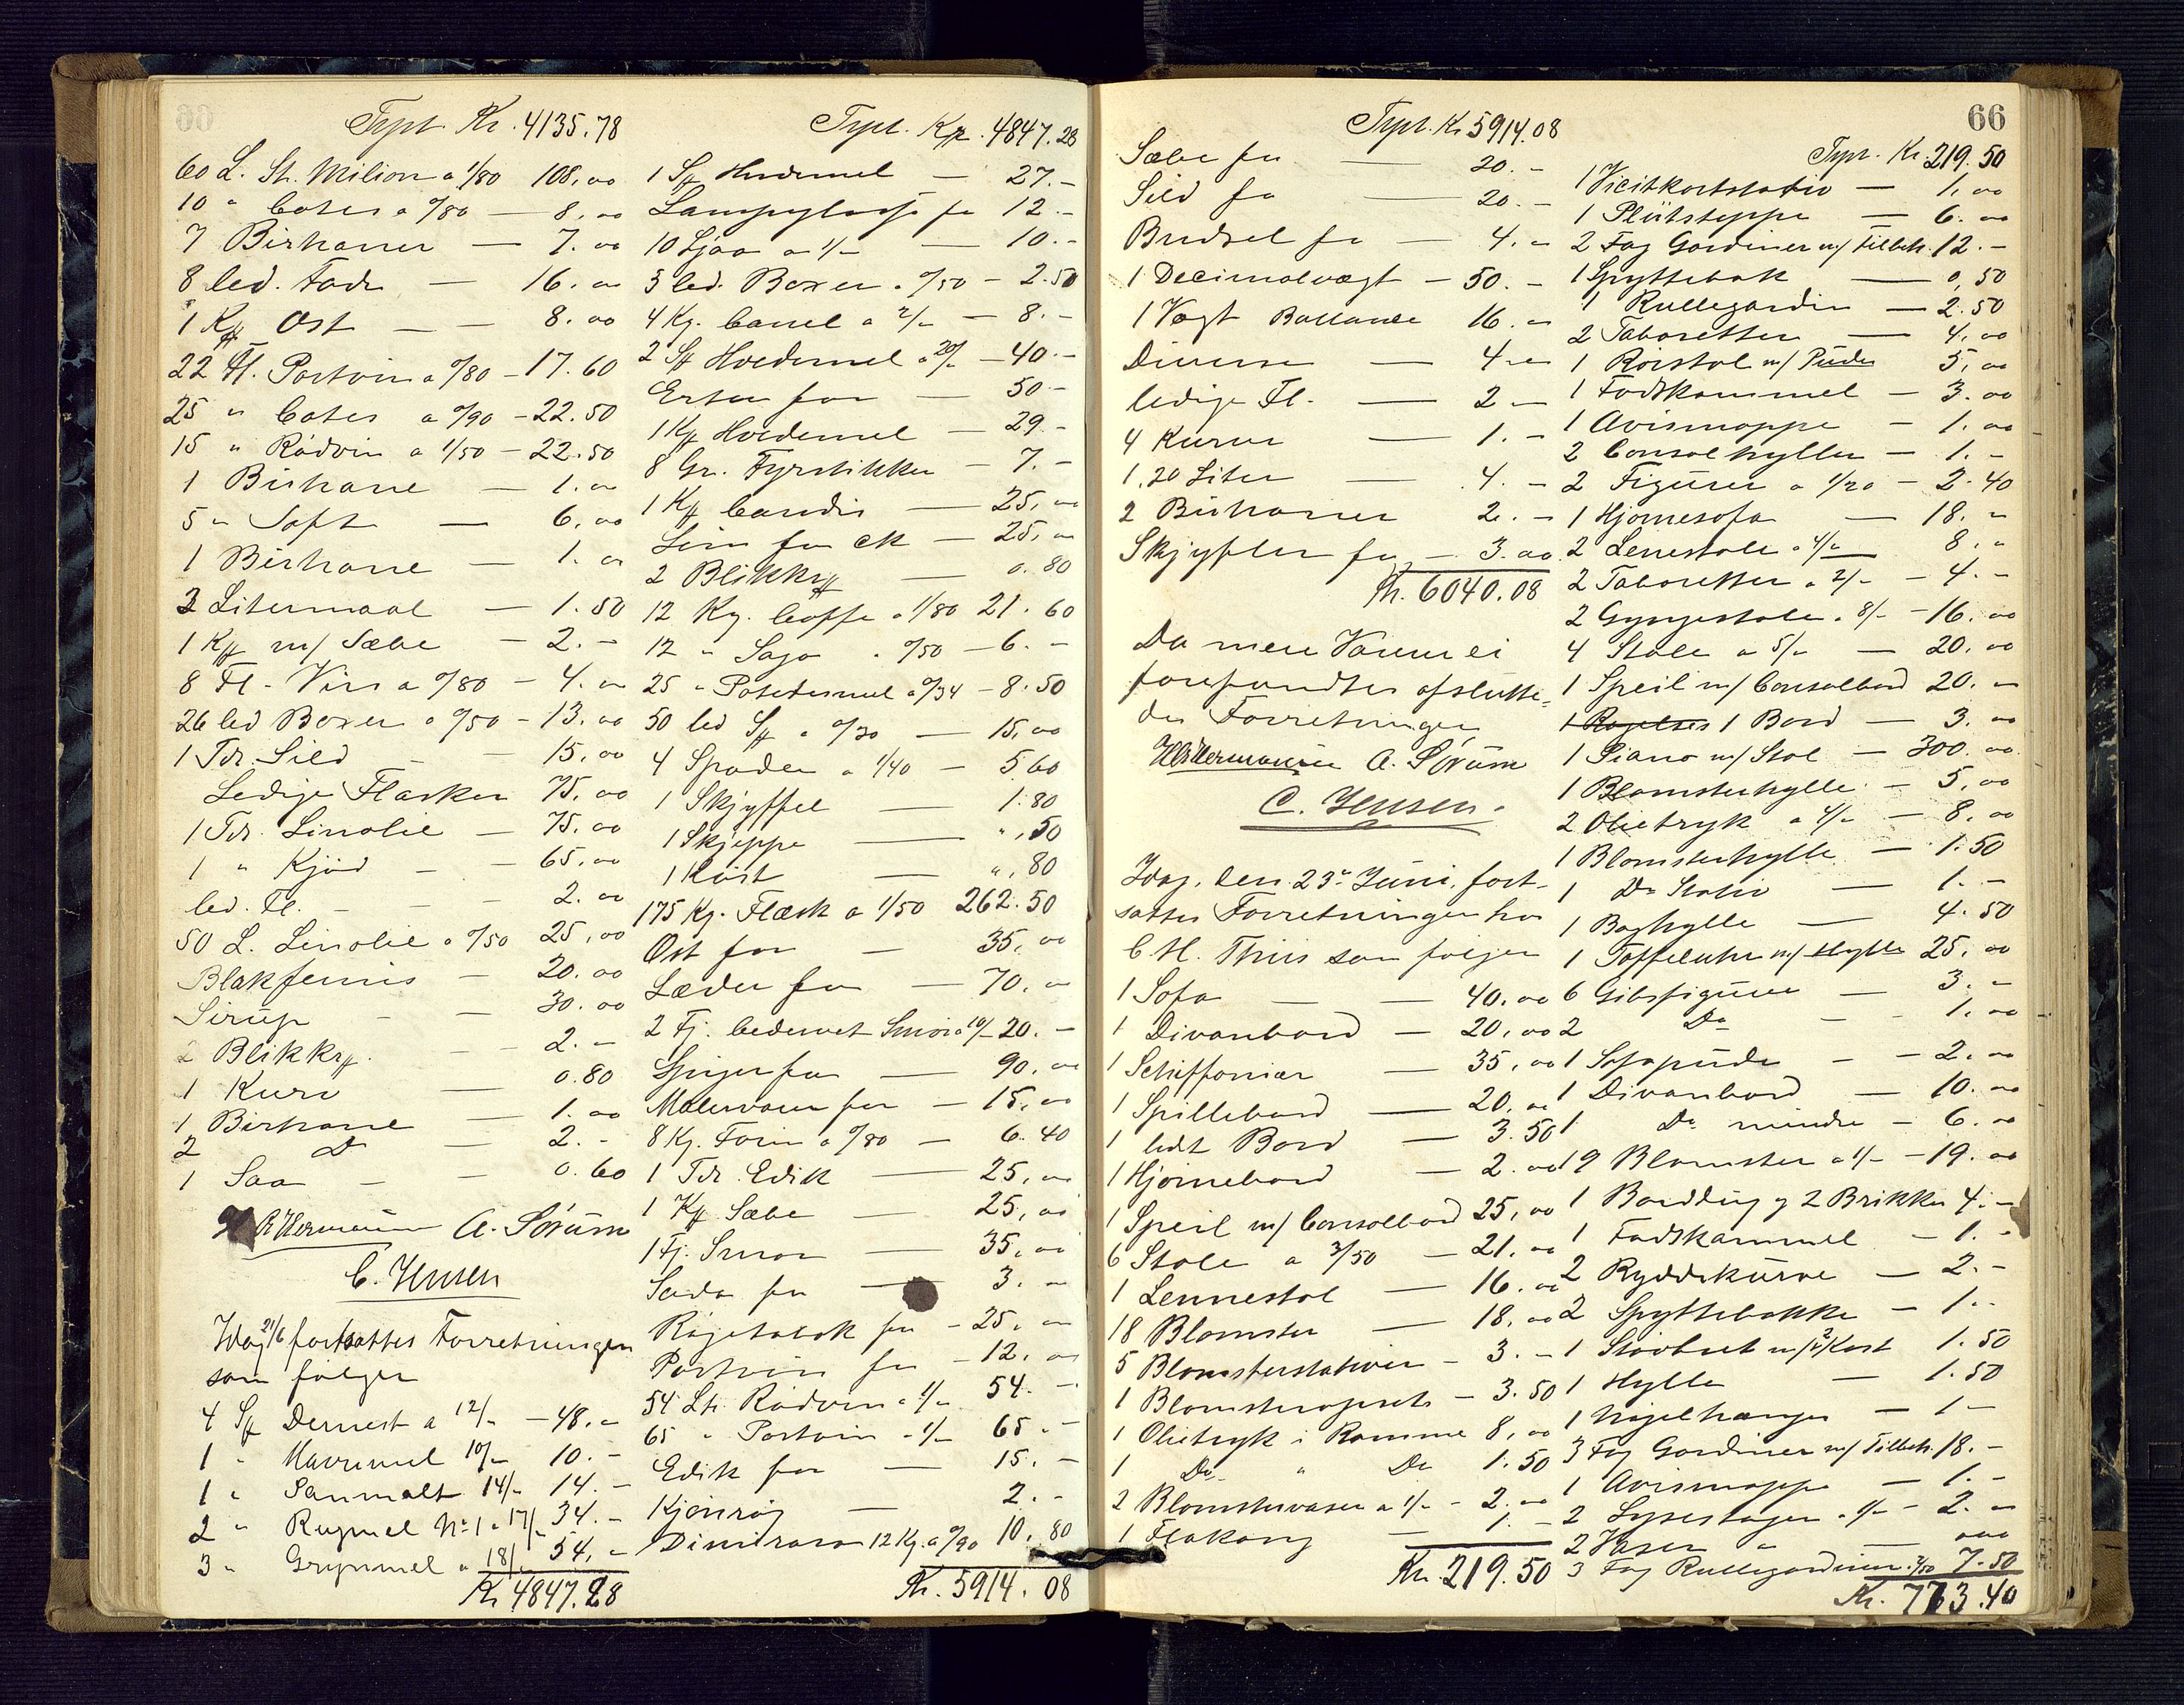 Trpt. Kr. 4135.78
60 L. St. Milion a 1/80 108,00
10 " Cotes a 0/80 — 8,00
7 Birhaner — 7.00
8 led. Fade — 16.00
1 Kg Ost — — 8.00
22 Fl. Portvin a 0/80 — 17.60
25 " Cotes a 0/90 — 22.50
15 " Rödvin a 1/50 — 22.50
1 Birhane — 1.00
5 " Saft — 6,00
1 Birhane — 1.00
3 Litermaal — 1.50
1 Kg m/ Sæbe — 2.-
8 Fl. Vin a 0/80 — 4.00
26 led Boxer a 0/50 — 13.00
1 Tdr. Sild — 15,00
Ledige Flasker 75,00
1 Tdr. Linolie — 75.00
1 " Kjöd — 65.00
led. Fl. — — 2.00
50 L. Linolie a 0/50 25,00
Blakfernis — 20.00
Sirup — — 30.00
2 Blikkrg. — — 2.-
1 Kurv — 0.80
1 Birhane — 1.00
2 Do — 2.-
1 Saa — — 0.60
A. Sörum
C. Jensen
Idag 21/6 fortsattes Forretningen
som fölger
4 Sk 12/- — 48.-
1 " Havremel 10/- 10.-
1 " Sanmalt 14/- 14.-
2 " Rugmel No 1 a 17/- 34.-
3 " Grynmel a 18/- 54.-
Kr 4847.28
Trpt. Kr. 4847.28
1 Sk Hvedemel — 27.-
Lampeglas for 12.-
10 Ljaa a 1/- — 10.-
5 led. Boxer a 0/50 — 2.50
4 Kg. Canel a 2/- — 8.-
2 Sk Hvedemel a 20/- — 40.-
Erter for — 50-
1 Kg Hvedemel — 29-
8 Gr. Fyrstikker — 7.-
1 Kg Candis — 25,00
Lim for ck — 25,00
2 Blikkrg — 0.80
12 Kg. Coffe a 1/80 21.60
12 " Sago a 0/50 — 6.-
25 " Potetesmel a 0/34 — 8.50
50 led Sk a 0/30 — 15,00
4 Spader a 1/40 — 5.60
1 Skjyffel — 1.80
1 Skjeppe — ",50
1 Kost — ",80
175 Kg. Flæsk a 1/50 262.50
Ost for — 35,00
Læder for — 70.00
2 Fj. bedervet Smör a 10/- 20.-
Spiger for — 90.00
Malervarer for — 15,00
8 Kg. Farin a 0/80 — 6.40
1 Tdr. Edik — 25,00
1 Kg Sæbe — 25,00
1 Fj. Smör — 35,00
Soda for — 3.-
Rögetobak for — 25,00
Portvin for — 12,00
54 Ltr Rödvin a 1/- 54.-
65 " Portvin a 1/- 65.-
Edik for — 15.-
Kjönrög — 2.-
12 Kg. a 0/90 10.80
Kr. 5914.08
66
Trpt. Kr 5914.08
Sæbe for — 20.-
Sild for — 20.-
Bridsel for — 4.-
1 Decimalvægt — 50.-
1 Vægt Ballance 16.-
Diverse — 4.-
ledige Fl. — 2.-
4 Kurve — 1.-
1.20 Liter — 4.-
2 Birhaner 2.-
Skjyfler for — 3.00
Kr. 6040.08
Da mere Varer ei
forefandtes afslutte-
des Forretningen
A. Sörum
C. Jensen.
Idag, den 23de Juni, fort-
sattes Forretningen hos
C. H. Thiis som følger
1 Sofa — — 40.00
1 Divanbord — 20,00
1 Schiffonier — 35,00
1 Spillebord — 20,00
1 lidt Bord — 3.50
1 Hjörnebord — 2.00
1 Speil m/ Consolbord 25,00
6 Stole a 3/50 — 21.00
1 Lennestol — 16.00
18 Blomster — 18,00
5 Blomsterstativer — 3.-
1 Blomsteropsats — 3.50
1 Olietryk i Ramme 8,00
1 Do " Do 1.50
2 Blomstervaser a 1/- — 2.00
1 — 1.-
Kr. 219.50
Trpt. Kr. 219.50
1 Vicitkortstativ — 1,00
1 Plüsteppe — 6.00
2 Fag Gardiner m/ Tilbeh. 12.-
1 Spyttebak — 0,50
1 Rullegardin — 2.50
2 Taboretter — 4,00
1 Rörstol m/ Pude 5,00
1 Fodskammel — 3.00
1 Avismappe — 1.00
2 Consolhyller — 1.-
2 Figurer a 1/20 — 2.40
1 Hjörnesofa — 18.-
2 Lenestole a 4/- 8.-
2 Taboretter a 2/- — 4.-
2 Gyngestole a 8/- — 16.00
4 Stole a 5/- — 20.00
1 Speil m/ Consolbord 20.-
1 Bord — 3.00
1 Piano m/ Stol — 300.00
1 Blomsterhylle — 5,00
2 Olietryk a 4/- — 8,00
1 Blomsterhylle — 1.50
1 Do Stativ — 1.-
1 Boghylle — 4.50
1 Taffeluhr m/ Hylle 25.00
6 Gibsfigurer — 3.-
2 Do — 1.00
1 Sofapude — — 2.00
1 Divanbord — 10.00
1 Do mindre — 6.00
19 Blomster a 1/- — 19.00
1 Borddug og 2 Brikker 4.-
1 Fodskammel — 1.-
2 Ryddekurve — 2.-
2 Spyttebakke — 1.-
1 Stövbret m/ 2 Kost 1.50
1 Hylle — 1.50
1 — 1-
3 Fag Gardiner m/ Tilbeh. 18.-
1 Avismappe — 1.-
2 Lysestager a 1/- — 2.-
2 Vaser a —
3 Fag Rullegardiner 7.50
Kr. 773.40